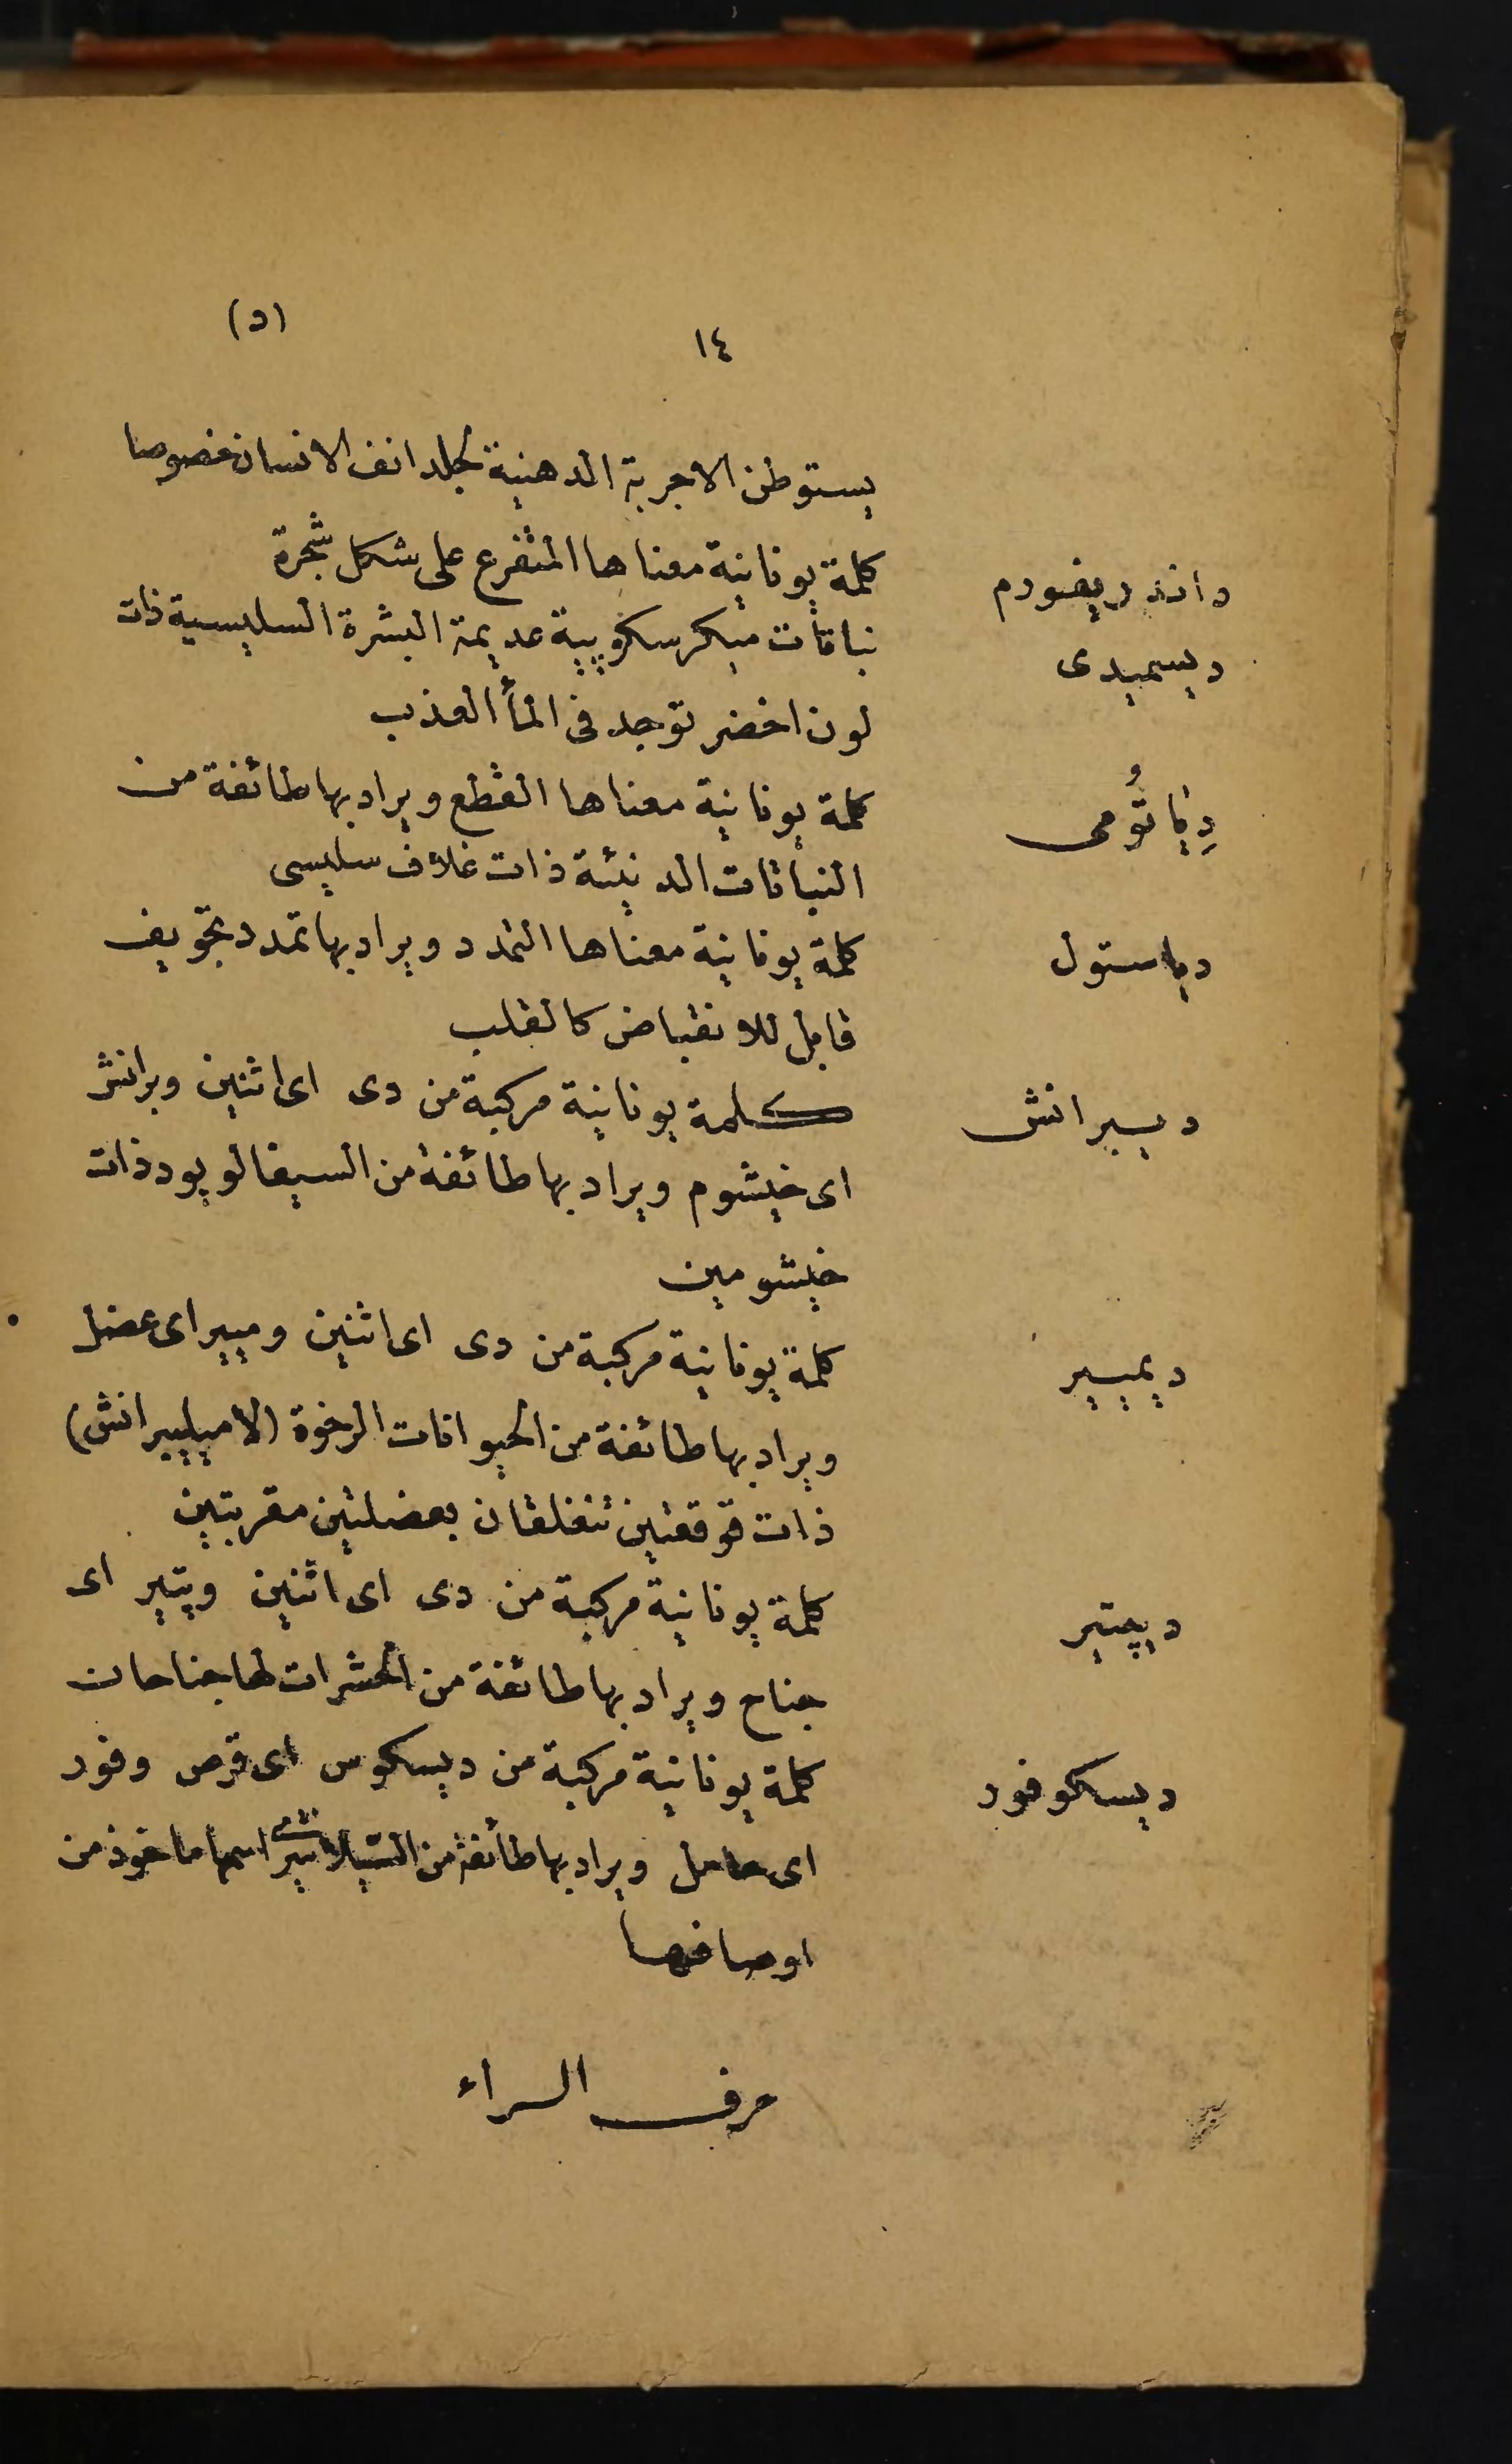 (د)
١٤
يستوطن الاجربة الدهنية لجلد انف الانسان خصوصا
داندريفورم كلمة يونانية معناها المتفرع على شكل شجرة
ديسميدى نباتات ميكرسكوپية عديمة البشرة السليسية ذات
لون اخضر توجد فى المأ العذب
دِيَاتُومى كلمة يونانية معناها القطع ويراد بها طائفة من
النباتات الدنيئة ذات غلاف سليسى
دياستول كلمة يونانية معناها التمدد ويراد بها تمدد تجويف
قابل للانقباض كالقلب
ديبرانش كلمة يونانية مركبة من دى اى اثنين وبرانش
اى خيشوم ويراد بها طائفة من السيفالوپود ذات
خيشومين
ديميير كلمة يونانية مركبة من دى اى اثنين وميير اى عضل
ويراد بها طائفة من الحيوانات الرخوة (لاميليبرانش)
ذات قوقعتين تنغلقان بعضلتين مقربتين
ديپتير كلمة يونانية مركبة من دى اى اثنين وپتير اى
جناح ويراد بها طائفة من الحشرات لها جناحان
ديسكوفور كلمة يونانية مركبة من ديسكوس اى قرص وفور
اى حامل ويراد بها طائفة من اسمها ماخوذ من
اوصافها
حرف الراء